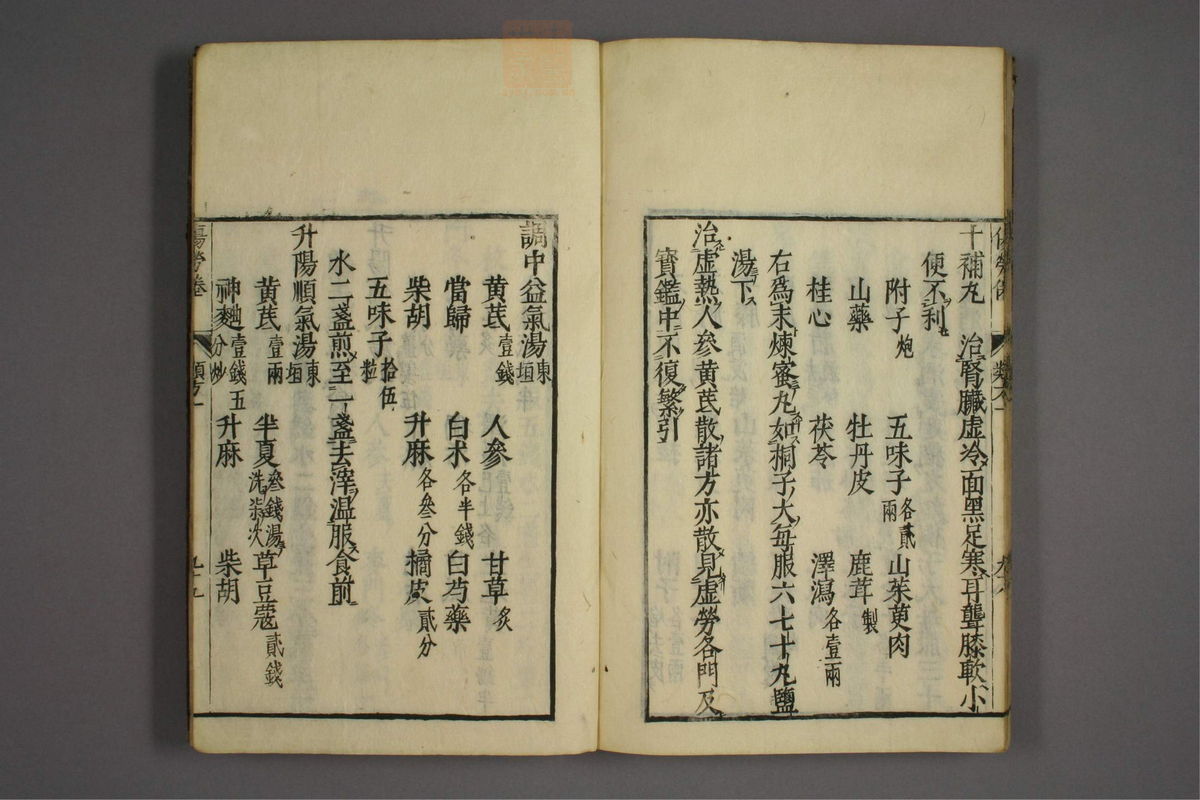 十補丸 治腎臟虛冷面黑足寒耳聾膝軟小
便不利
附子炮 五味子各貳兩 山茱萸肉
山藥 牡丹皮 鹿茸製
桂心 茯苓 澤瀉各壹兩
右爲末煉蜜丸如桐子大每服六七十丸鹽
湯下
治虛熱人參黄芪散諸方亦散見虛勞各門及
寳鑑中不復繁引
調中益氣湯東垣
黄芪壹錢 人參 甘草炙
當歸 白朮各半錢 白芍藥
柴胡 升麻各參分 橘皮貳分
五味子拾伍粒
水二盞煎至一盞去滓温服食前
升陽順氣湯東垣
黄芪壹兩 半夏參錢湯洗柒次 草豆蔻貳錢
神麯壹錢五分炒 升麻 柴胡